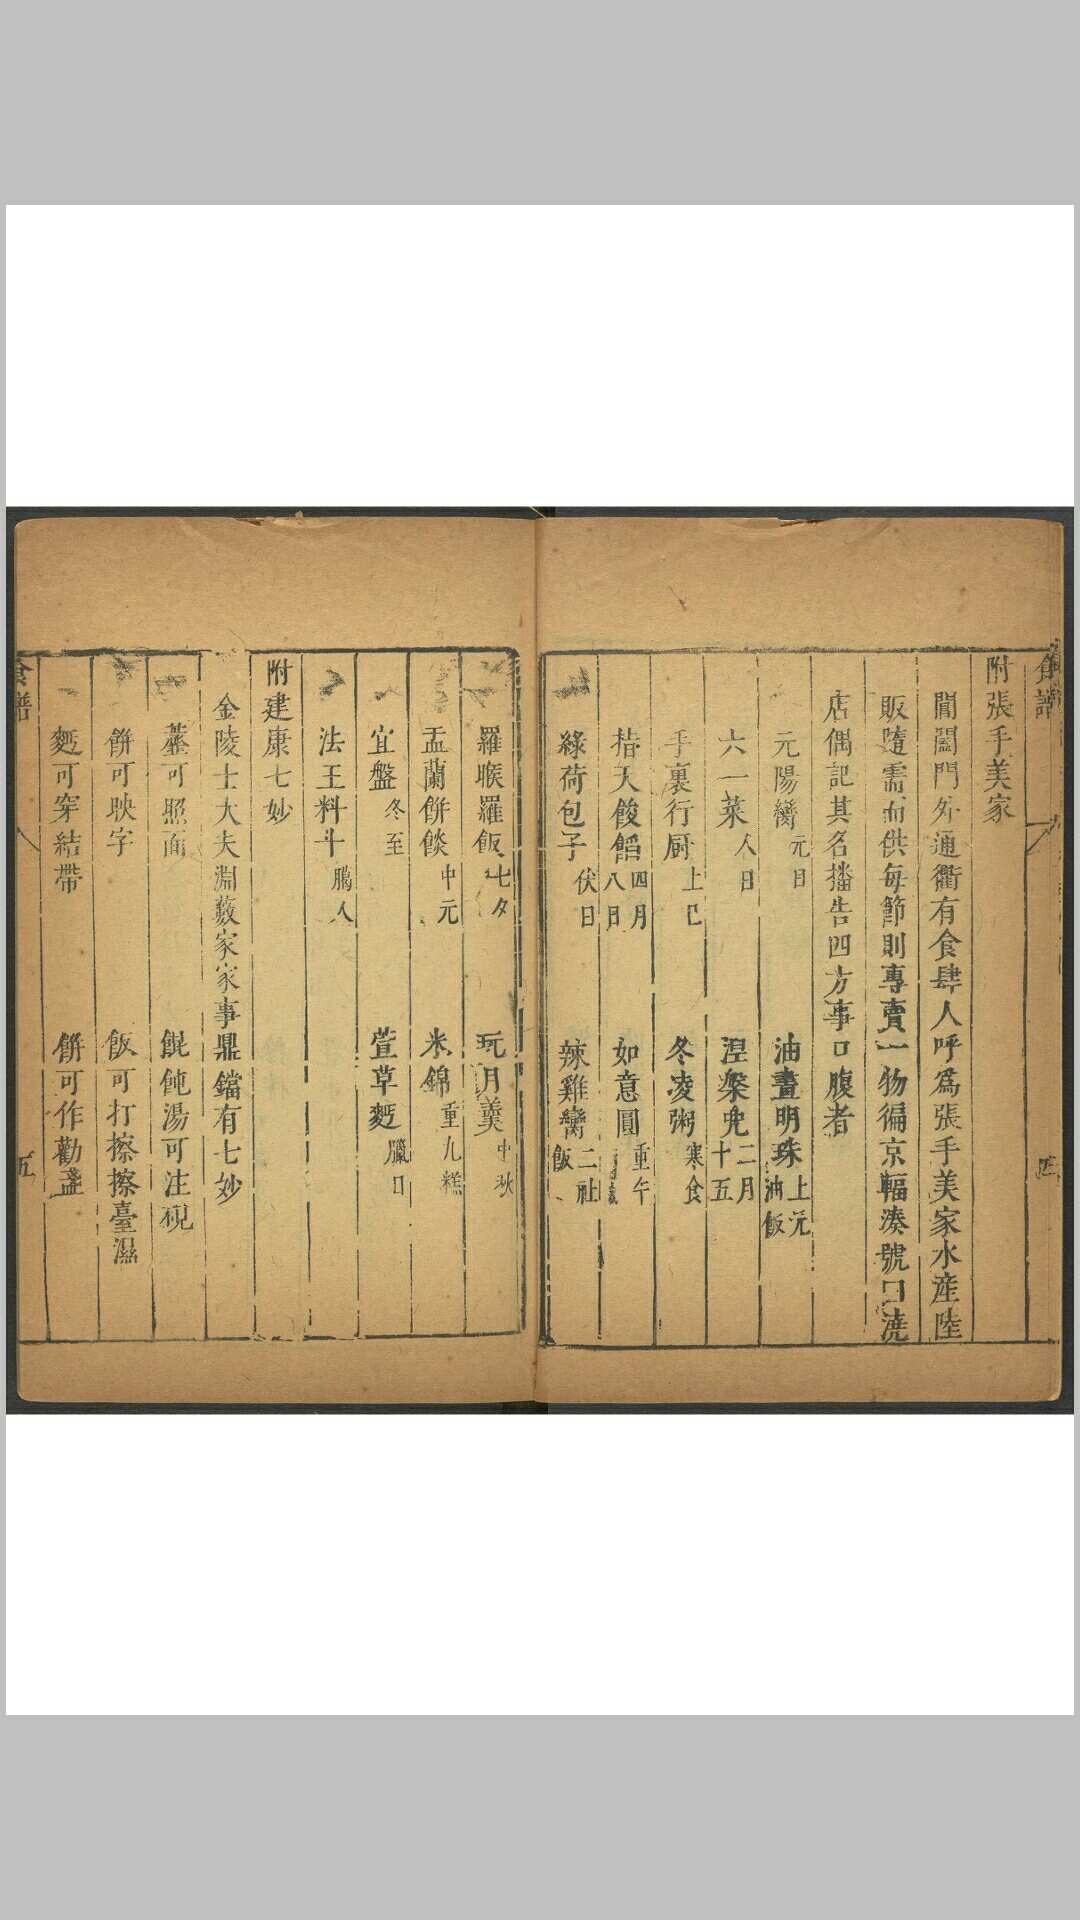 食譜
四
附張手美家
閶闔門外通衢有食肆人呼爲張手美家水産陸
販隨需而供每節則專賣一物徧京輻湊號曰澆
店偶記其名播告四方事口腹者
元陽臠元日
油畫明珠上元油飯
六一菜人日
涅槃兜二月十五
手裏行厨上巳
冬凌粥寒食
指天餕餡四月八日
如意圓重午
綠荷包子伏日
辣雞臠二社飯
羅睺羅飯七夕
玩月羹中秋
盂蘭餅餤中元
米錦重九糕
宜盤冬至
萱草麫臘日
法王料斗臘八
附建康七妙
金陵士大夫淵藪家家事鼎鐺有七妙
虀可照面
餛飩湯可注硯
餅可映字
飯可打擦擦臺濕
麫可穿結帶
餅可作勸盞
食譜
五